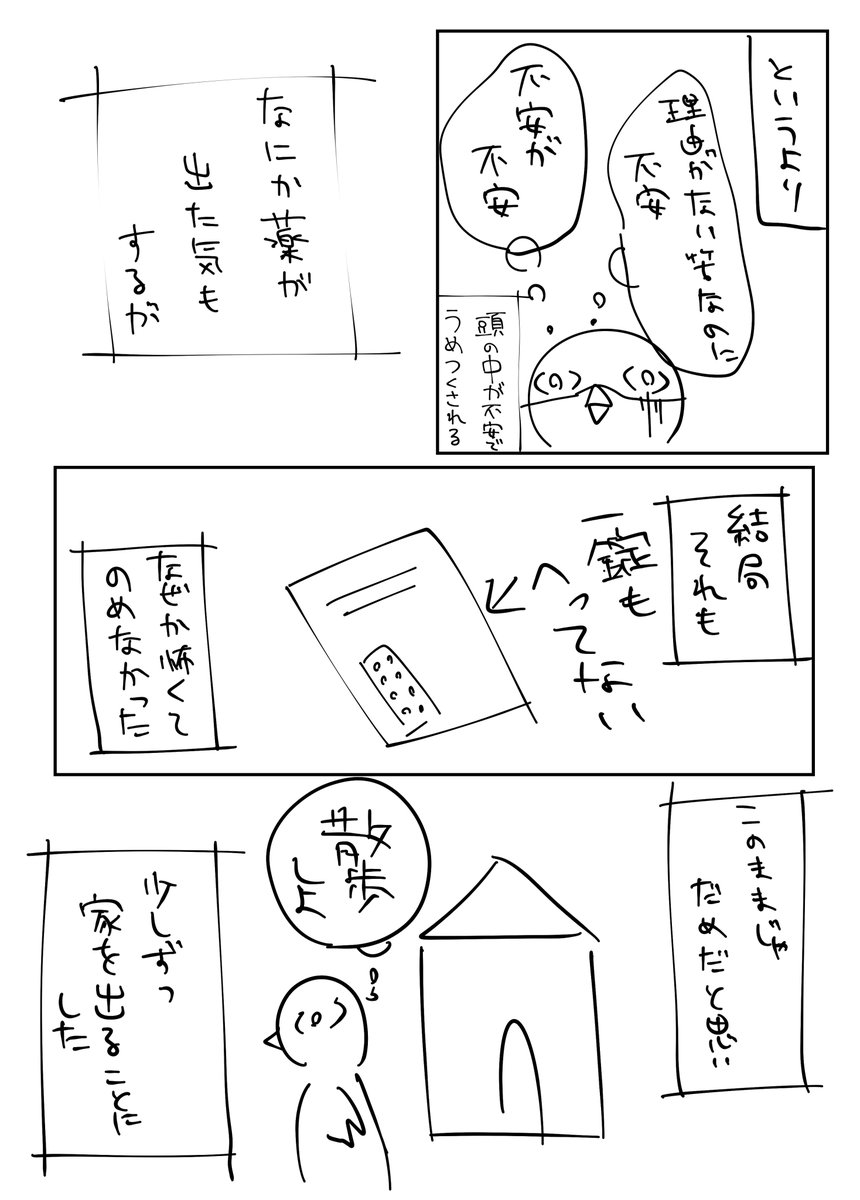 というより
理由がない筈なのに
不安
不安が
不安
頭の中が不安で
うめつくされる
なにか薬が
出た気も
するが
結局
それも
一錠も
へってない
なぜか怖くて
のめなかった
このままじゃ
だめだと思い
散歩
少しずつ
家を出ることに
した